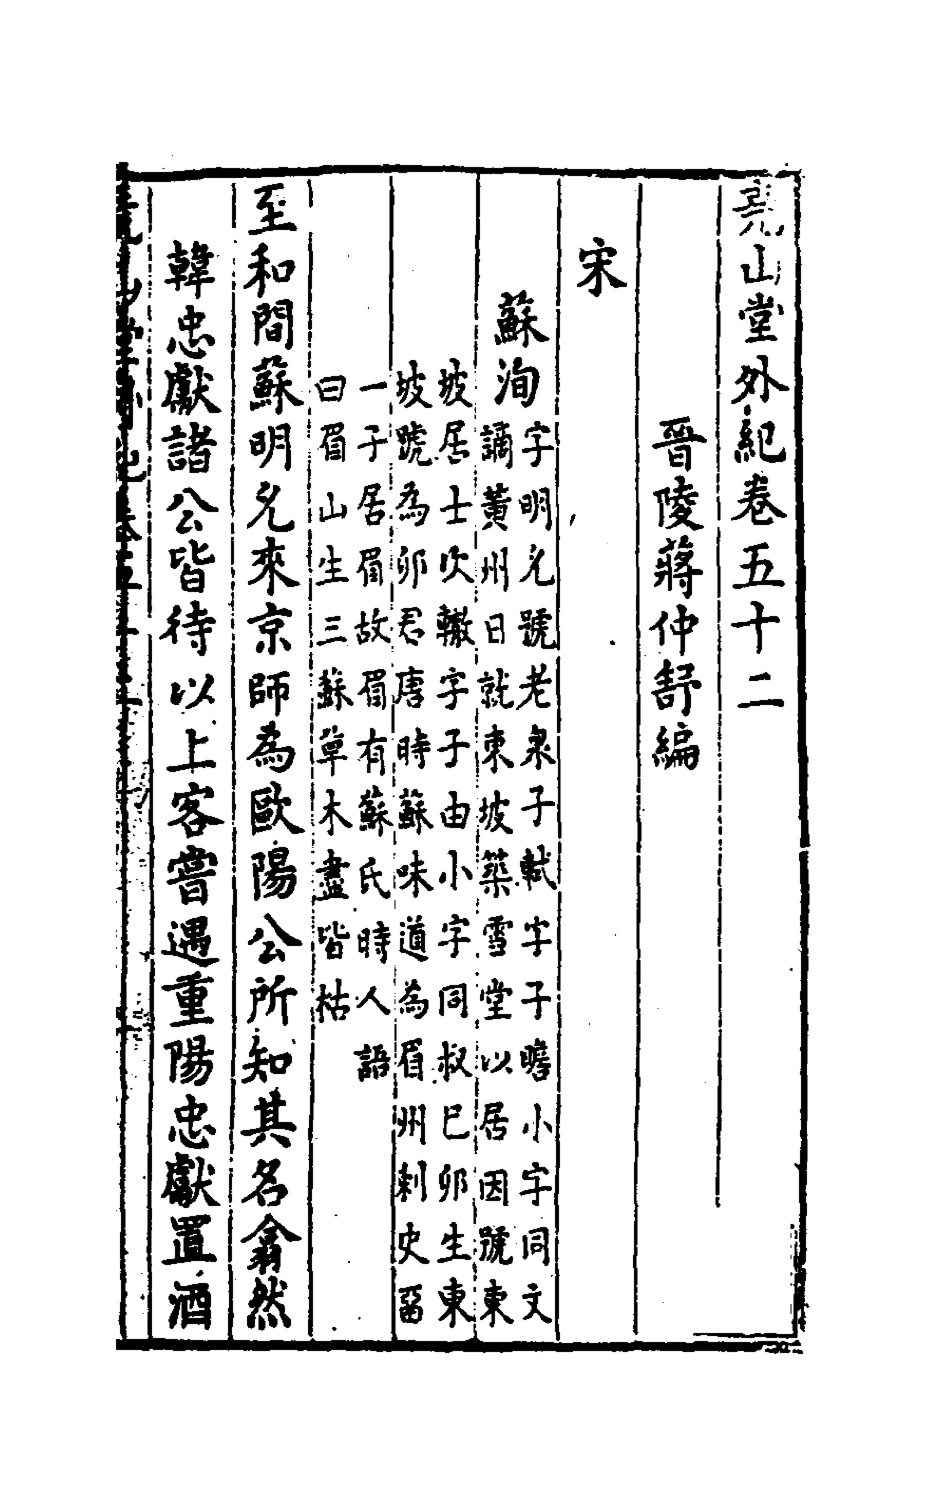 堯山堂外紀卷五十二
晉陵蔣仲舒編
宋
蘇洵
字明允號老泉子軾字子瞻小字同文
謫黃州日就東坡築雪堂以居因號東
坡居士次轍字子由小字同叔巳卯生東
坡號為卯君唐時蘇味道為眉州刺史留
一子居眉故眉有蘇氏時人語
曰眉山生三蘇草木盡皆枯
至和間蘇明允來京師為歐陽公所知其名翕然
韓忠獻諸公皆待以上客嘗遇重陽忠獻置酒